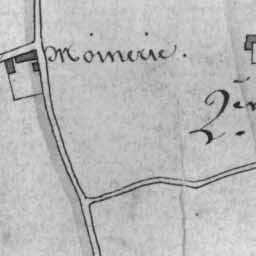 Moinerie.
2.e